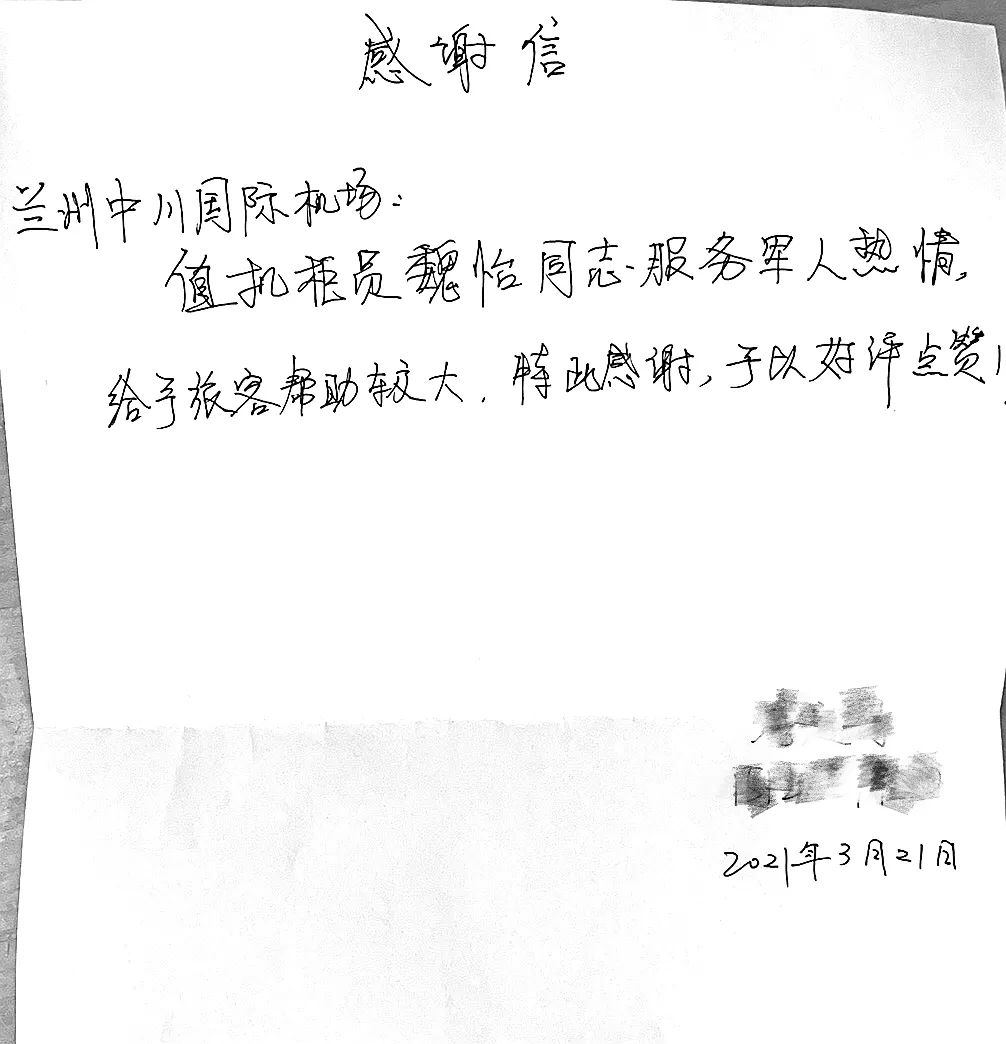 感谢信
兰州中川国际机场:
值机柜员魏怡同志服务军人热情,
给予旅客帮助较大,特此感谢,予以好评点赞!
2021年3月21日